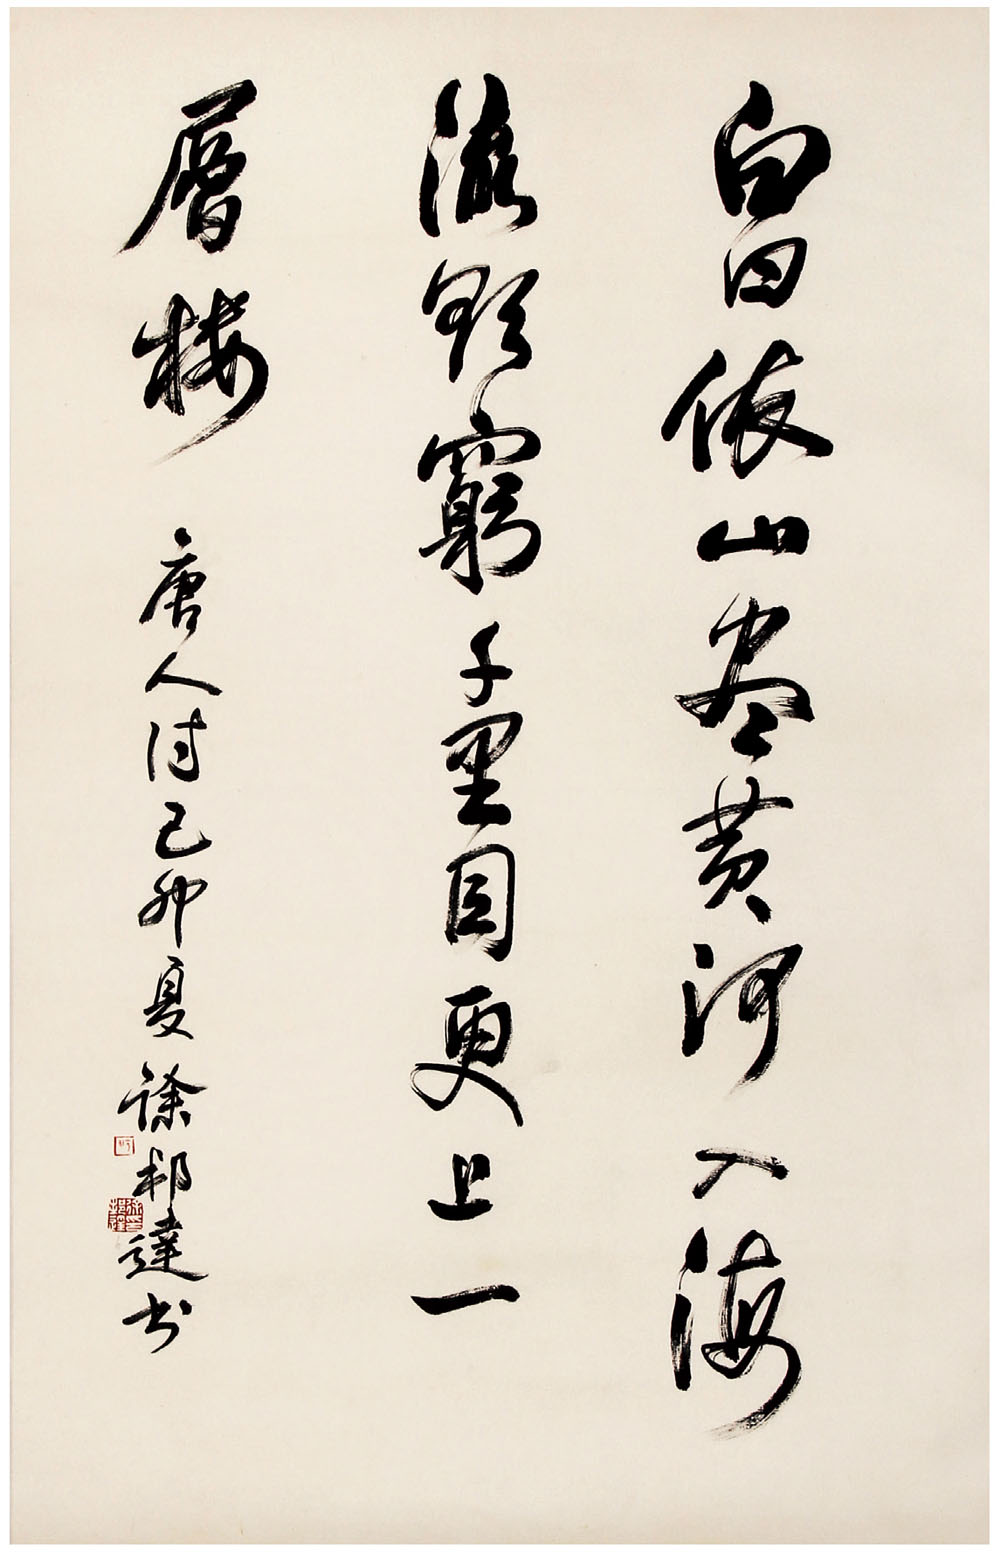 白日依山尽黄河入海
流欲穷千里目更上一
层楼 唐人诗己卯夏徐邦达书